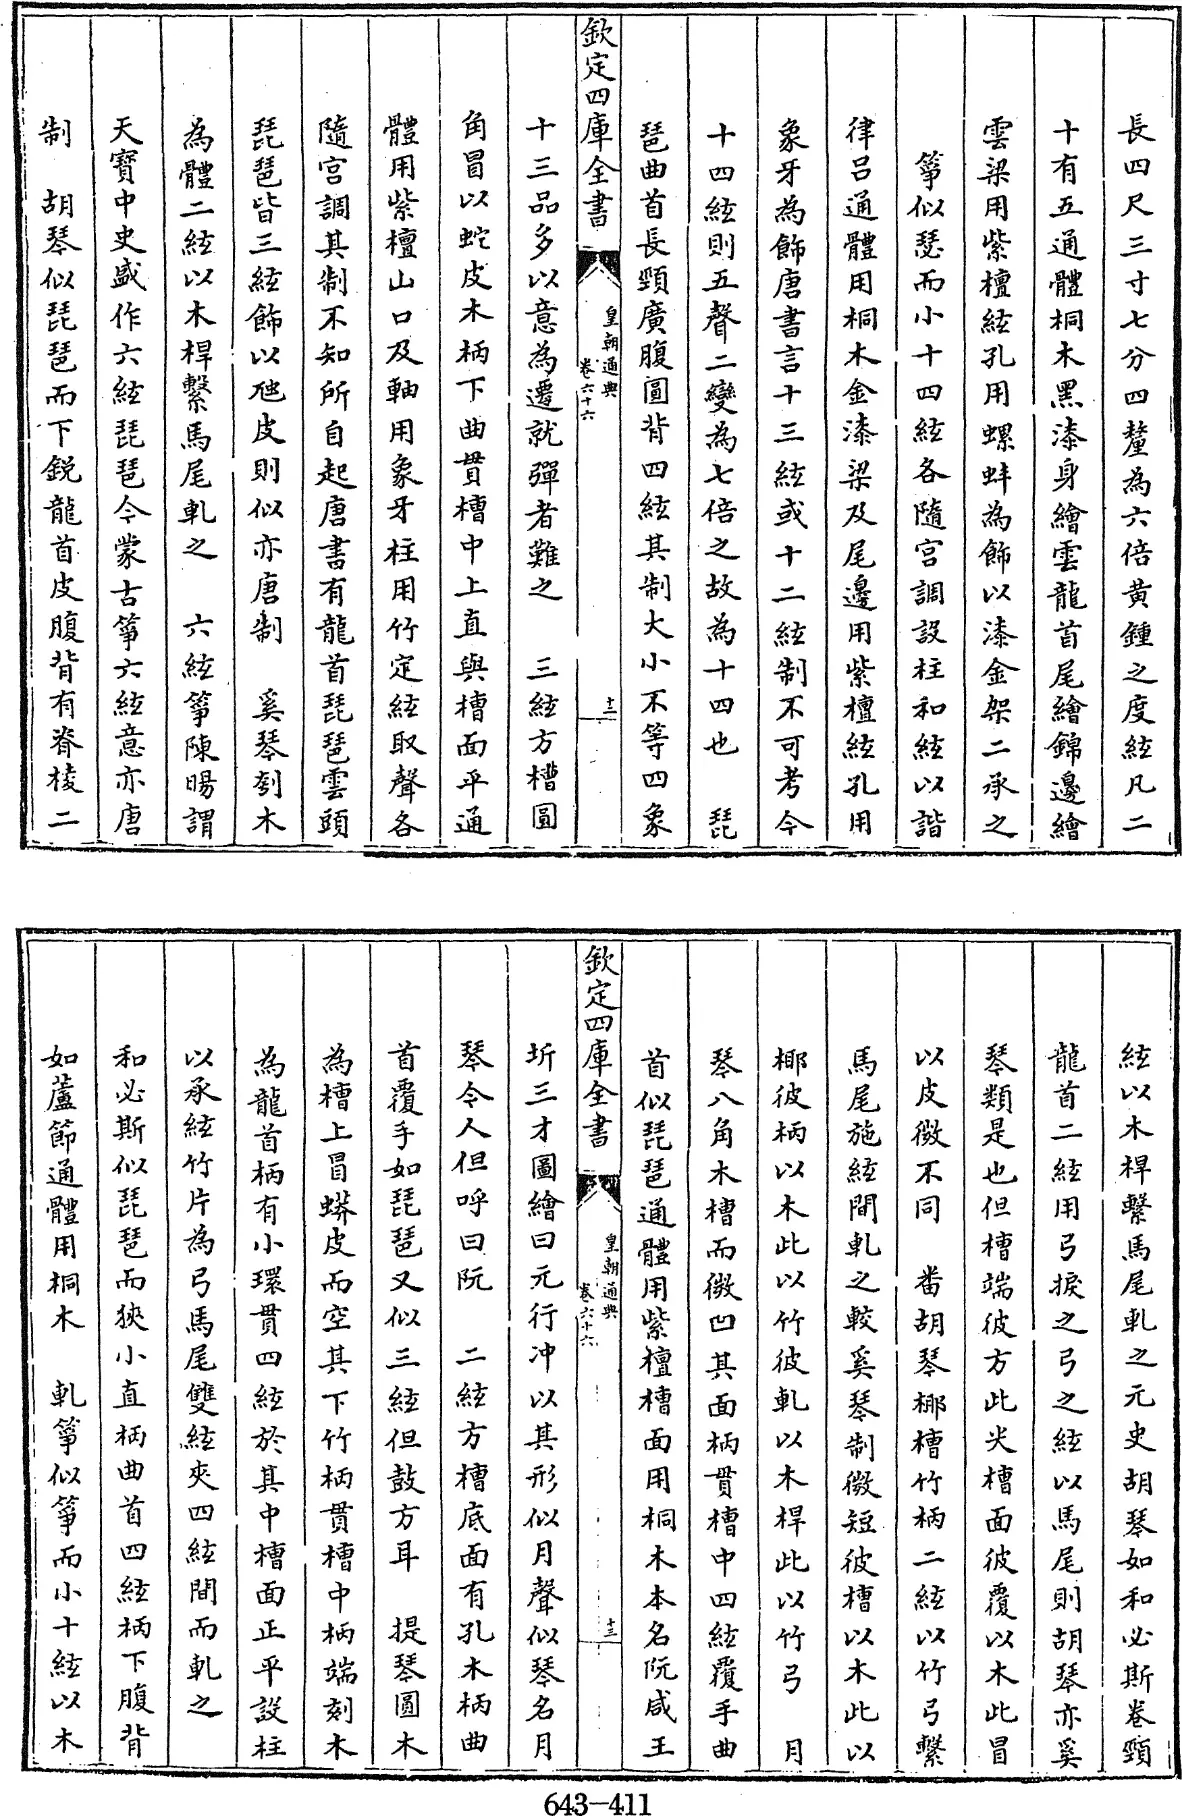 長四尺三寸七分四釐為六倍黄鍾之度絃凡二
十有五通體桐木黑漆身繪雲龍首尾繪錦邊繪
雲梁用紫檀絃孔用螺蚌為飾以漆金架二承之
箏似瑟而小十四絃各隨宫調設柱和絃以諧
律吕通體用桐木金漆梁及尾邊用紫檀絃孔用
象牙為飾唐書言十三絃或十二絃制不可考今
十四絃則五聲二變為七倍之故為十四也　琵
琶曲首長頸廣腹圓背四絃其制大小不等四象
欽定四庫全書
皇朝通典
卷六十六
十二
十三品多以意為遷就彈者難之　三絃方槽圓
角冒以蛇皮木柄下曲貫槽中上直與槽面平通
體用紫檀山口及軸用象牙柱用竹定絃取聲各
隨宫調其制不知所自起唐書有龍首琵琶雲頭
琵琶皆三絃飾以虺皮則似亦唐制　奚琴刳木
為體二絃以木桿繫馬尾軋之　六絃箏陳暘謂
天寳中史盛作六絃琵琶今蒙古箏六絃意亦唐
制　胡琴似琵琶而下鋭龍首皮腹背有脊棱二
絃以木桿繫馬尾軋之元史胡琴如和必斯卷頸
龍首二絃用弓捩之弓之絃以馬尾則胡琴亦奚
琴類是也但槽端彼方此尖槽面彼覆以木此冒
以皮微不同　番胡琴椰槽竹柄二絃以竹弓繫
馬尾施絃間軋之較奚琴制微短彼槽以木此以
椰彼柄以木此以竹彼軋以木桿此以竹弓　月
琴八角木槽而微凹其面柄貫槽中四絃覆手曲
首似琵琶通體用紫檀槽面用桐木本名阮咸王
欽定四庫全書
皇朝通典
卷六十六
十三
圻三才圖繪曰元行冲以其形似月聲似琴名月
琴今人但呼曰阮　二絃方槽底面有孔木柄曲
首覆手如琵琶又似三絃但鼓方耳　提琴圓木
為槽上冒蟒皮而空其下竹柄貫槽中柄端刻木
為龍首柄有小環貫四絃於其中槽面正平設柱
以承絃竹片為弓馬尾雙絃夾四絃間而軋之
和必斯似琵琶而狹小直柄曲首四絃柄下腹背
如蘆節通體用桐木　軋箏似箏而小十絃以木
643-411